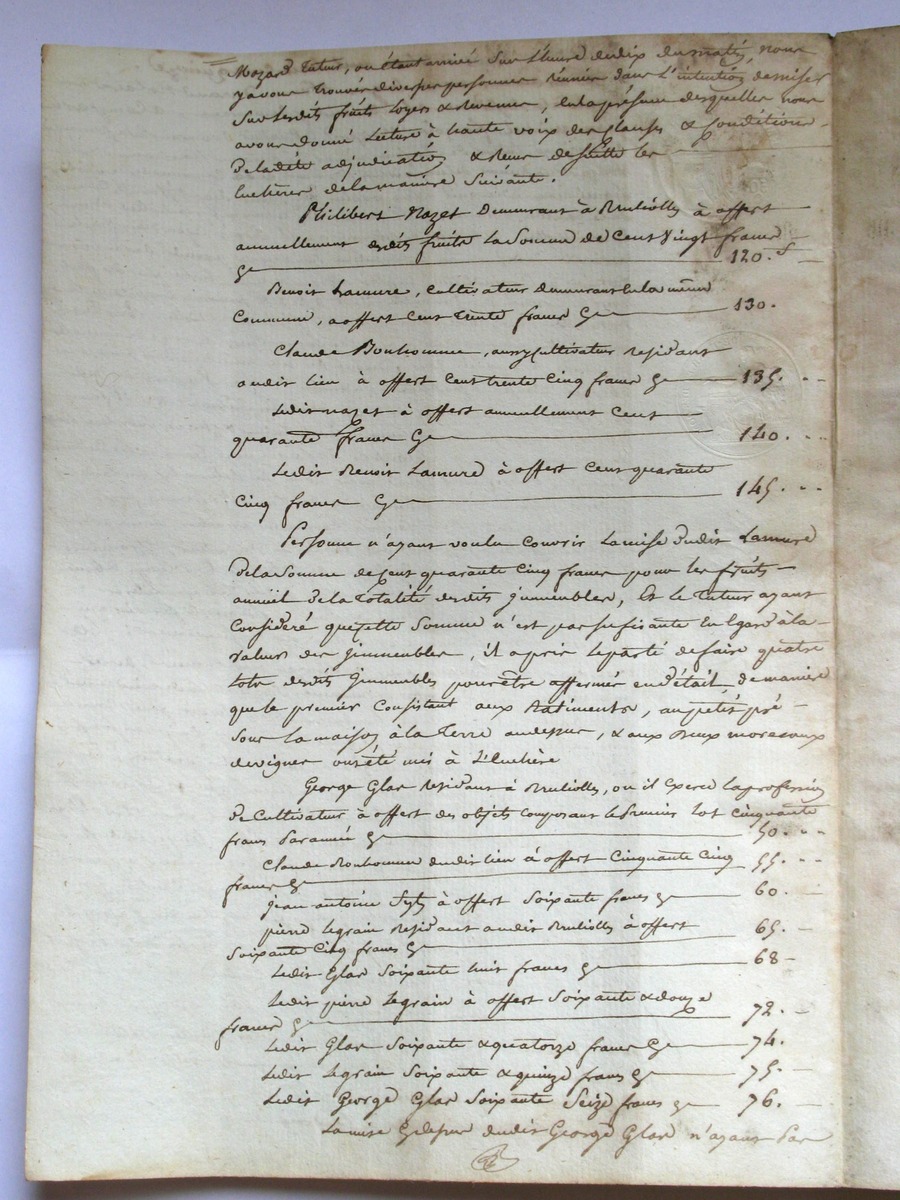 tuteur, ou étant arrivé sur l'heure de dix du matin, nous
y avons trouvés diverses personnes réunies dans l'intention de miser
sur lesdits fruits loyers & revenus, en la présence desquelles nous
avons donné lecture à haute voix des clauses & conditions
de ladite adjudication & venu de suitte les
enchères de la manière suivante.
Philibert Nazet demeurant à Brulioles à offert
annuellement desdits fruits la somme de cent vingt francs
Cy 120. f
Benoit Lamure, cultivateur demeurant en la même
commune, a offert cent trente francs Cy 130.
Claude Bonhomme, aussy cultivateur résidant
audit lieu à offert cent trente cinq francs Cy 135.
Ledit Nazet à offert annuellement cent
quarante francs Cy 140.
Ledit Benoit Lamure à offert cent quarante
cinq francs Cy 145.
Personne n'ayant voulu couvrir la mise dudit Lamure
de la somme de cent quarante cinq francs pour les fruits
annuel de la totalité desdits immeubles, Et le tuteur ayant
considéré que cette somme n'est pas sufisante en égard à la
valeur des immeubles, il a pris le parti de faire quatre
lots desdits immeubles pour être affermés en détail, de manière
que le premier consistant aux batiments, au petit pré
sous la maison à la terre au dessus, & aux deux morceaux
de vignes ont été mis à l'enchère
George Glas résidant à Brulioles, ou il exerce la profession
de cultivateur à offert des objets composant le premier lot cinquante
francs par année Cy 50.
Claude Bonhomme dudit lieu à offert cinquante cinq
francs Cy 55.
jean antoine à offert soixante francs Cy 60.
pierre Legrain résidant audit Brulioles à offert
soixante cinq francs Cy 65.
Ledit Glas soixante huit francs Cy 68
Ledit pierre Legrain à offert soixante & douze
francs Cy 72.
Ledit Glas soixante & quatorze francs Cy 74.
Ledit Legrain soixante & quinze francs Cy 75.
Ledit George Glas soixante seize francs Cy 76.
La mise Cy dessus dudit George Glas n'ayant pas